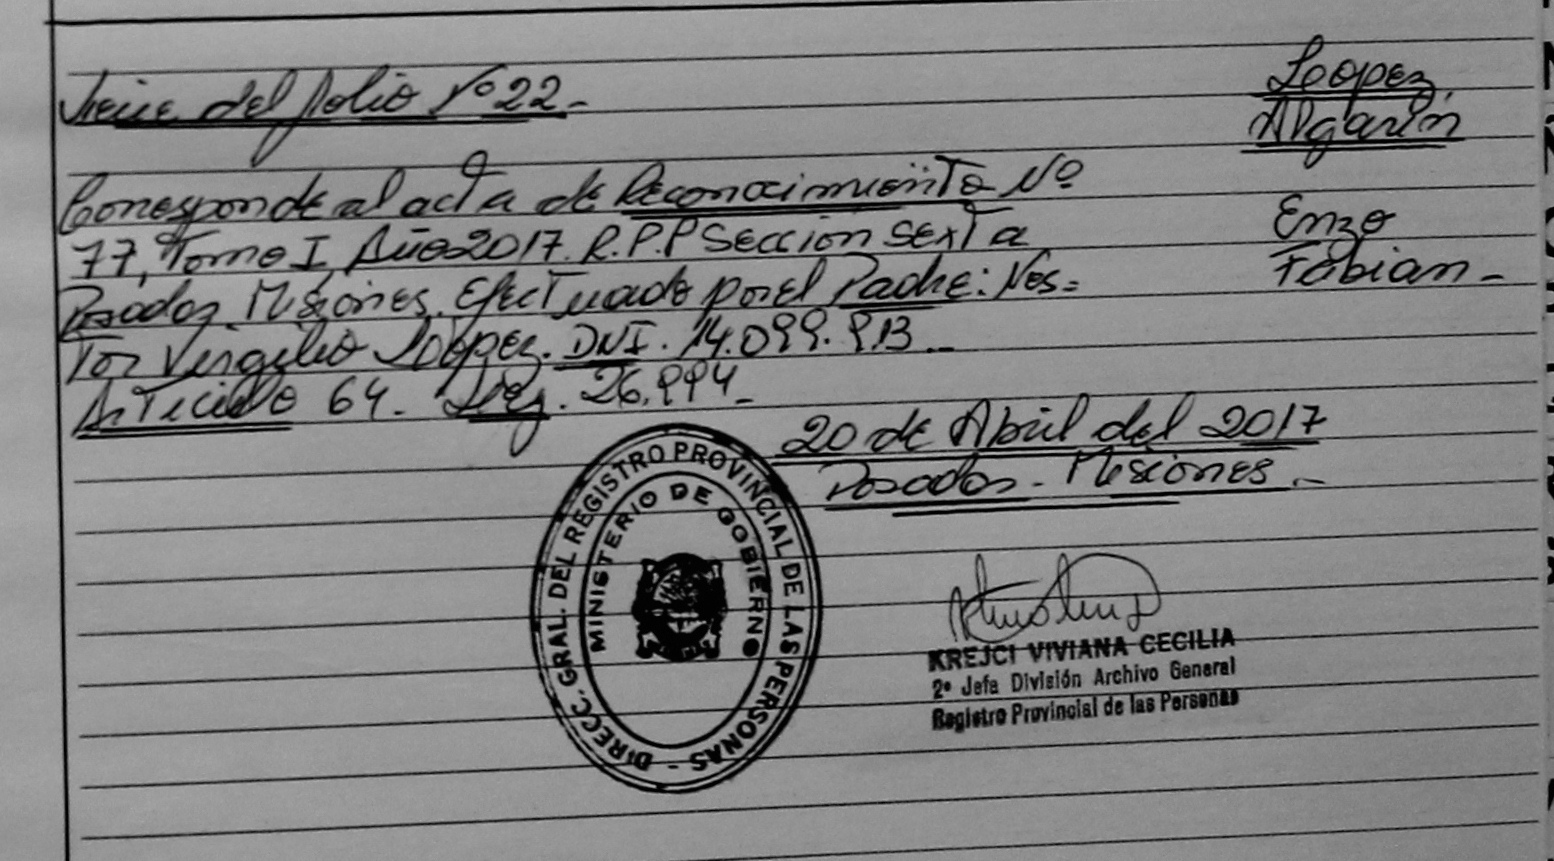 Viene del folio Nº 22-
Loopez
Algarin
Corresponde al acta de Reconocimiento Nº
77, Tomo I, Año 2017. R.P.P Sección Sexta
Posadas Misiones. Efectuado por el Padre: Nes=
tor Vergilio Loopez. DNI. 14.099.913_
Articulo 64. Ley. 26.994_
Enzo
Fabian_
20 de Abril del 2017
Posadas. Misiones._
DIRECC. GRAL. DEL REGISTRO PROVINCIAL DE LAS PERSONAS -
MINISTERIO DE GOBIERNO
KREJCI VIVIANA CECILIA
2º Jefa División Archivo General
Registro Provincial de las Personas